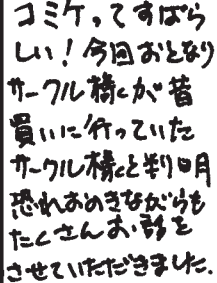 コミケってすばら
しい！今回おとなり
サークル様が昔
買いに行っていた
サークル様と判明
恐れおのきながらも
たくさんお話を
させていただきました。